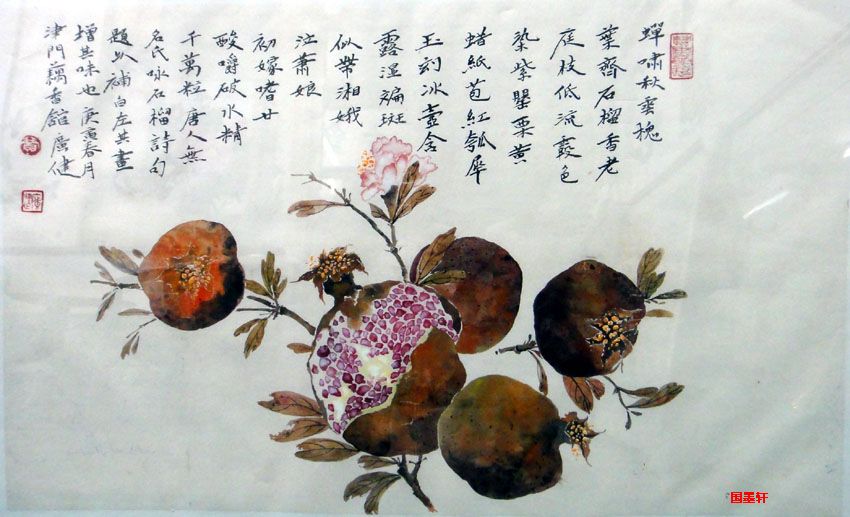 蟬嘯秋雲槐
葉齊石榴香老
庭枝低流霞色
染紫罌粟黃
蜡紙苞紅瓠犀
玉刻冰壺含
露湿斒斑
似帶湘娥
泣蕭娘
初嫁嗜甘
酸嚼破水精
千萬粒唐人無
名氏咏石榴詩句
題以補白左其畫
增其味也庚寅春月
津門藕香館廣健
国墨轩